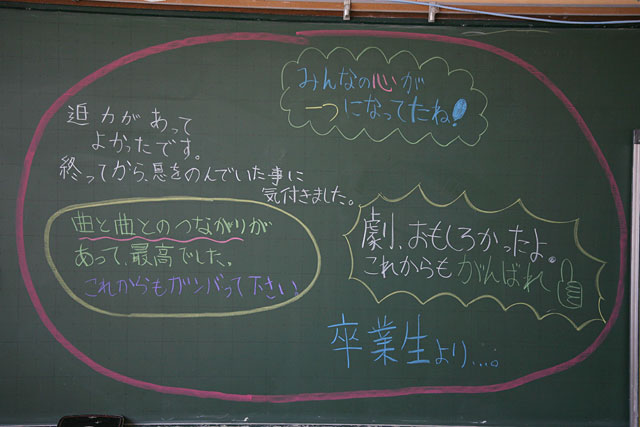 みんなの心が
一つになってたね!
迫力があって
よかったです。
終ってから、息をのんでいた事に
気付きました。
曲と曲とのつながりが
あって、最高でした。
これからもガンバって下さい
劇、おもしろかったよ。
これからもがんばれ
卒業生より....。